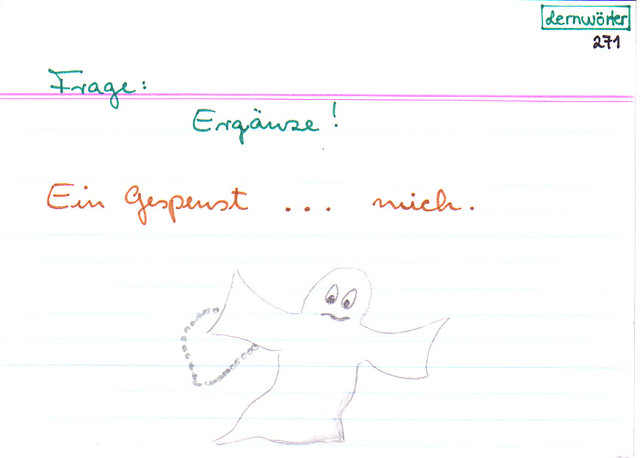 Lernwörter
271
Frage:
Ergänze!
Ein Gespenst ... mich.